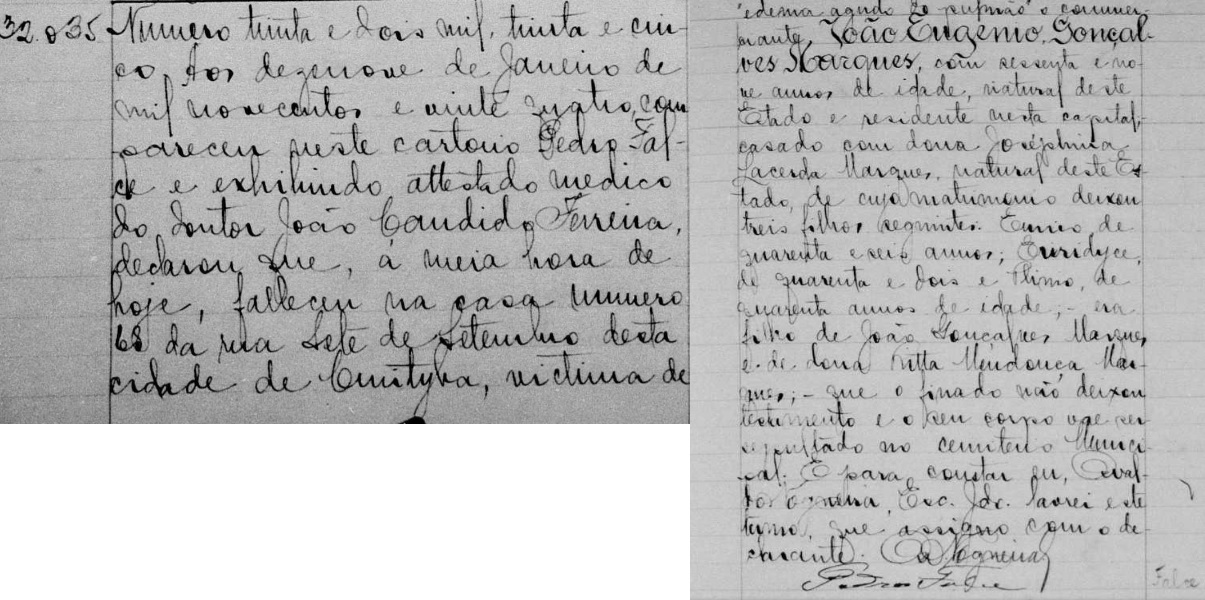 32.035 Numero trinta e dois mil, trinta e cin-
co. Aos dezenove de Janeiro de
mil novecentos e vinte quatro, com
pareceu neste cartorio Pedro Fal-
ce e exhibindo attestado medico
do doutor João Candido Ferreira,
declarou que, á meia hora de
hoje, falleceu na casa numero
68 da rua Sete de Setembro desta
cidade de Curityba, victima de
edema agudo do pulmão o commer-
ciante, João Eugenio Gonçal-
ves Marques, com sessenta e no-
ve annos de idade, natural deste
Estado e residente nesta capital,
casado com dona Joséphina
Lacerda Marques, natural deste Es-
tado, de cujo matrimonio deixou
treis filhos seguintes: Eurico, de
quarenta e seis annos; Euridyce,
de quarenta e dois e Plinio, de
quarenta annos de idade;- era
filho de João Gonçalves Marques
e de dona Ritta Mendonça Mar-
ques;- que o finado não deixou
testamento e o seu corpo vae ser
sepultado no cemiterio Munici-
pal. E para constar eu,
Nogueira, Esc. Jdo. lavrei este
termo, que assigno com o de-
clarante. Nogueira
Pedro Falce
Falce